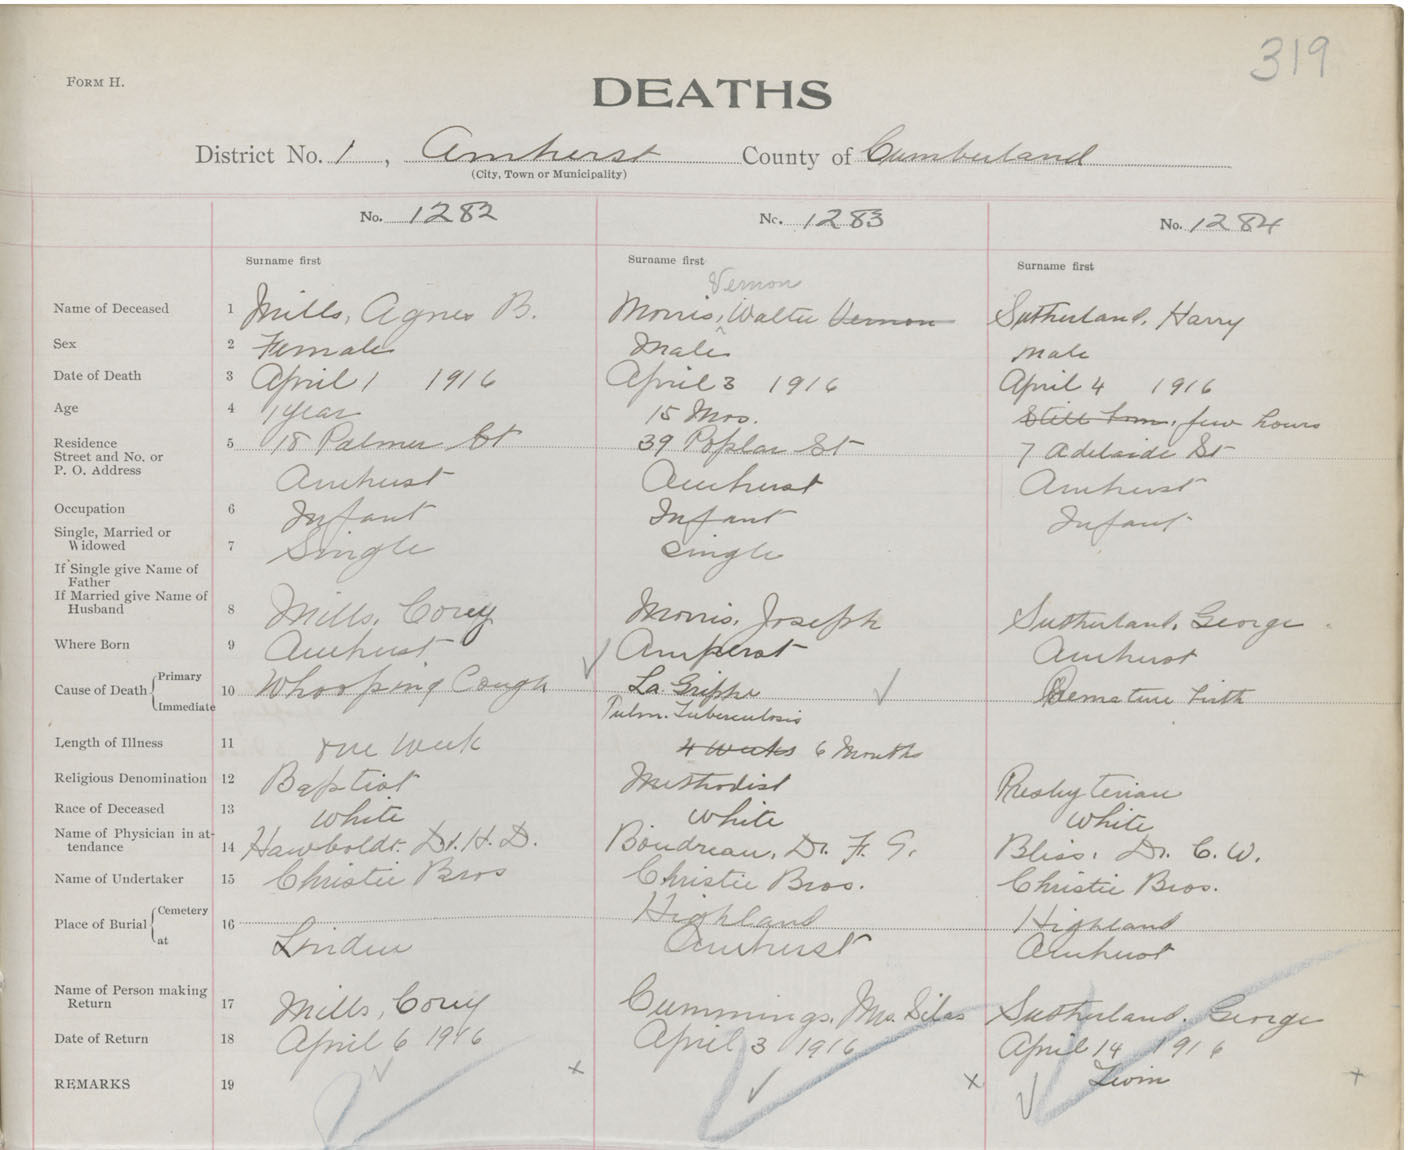 319
FORM H.
DEATHS
District No. 1, Amherst County of Cumberland
(City, Town or Municipality)
No. 1282 No. 1283 No. 1284
Surname first Surname first Surname first
Vernon
Name of Deceased 1 Mills, Agnes B. Morris, Walter Vernon Sutherland, Harry
Sex 2 Female Male Male
Date of Death 3 April 1 1916 April 3 1916 April 4 1916
Age 4 1 year 15 Mos. Still born, few hours
Residence
Street and No. or 5 18 Palmer St 39 Poplar St 7 Adelaide St
P. O. Address
Amherst Amherst Amherst
Occupation 6 Infant Infant Infant
Single, Married or
Widowed 7 Single Single
If Single give Name of
Father
If Married give Name of
Husband 8 Mills, Corey Morris, Joseph Sutherland, George
Where Born 9 Amherst Amherst Amherst
Cause of Death Primary
10 Whooping Cough La Grippe Premature birth
Immediate Pulm. Tuberculosis
Length of Illness 11 one week 4 weeks 6 Months
Religious Denomination 12 Baptist Methodist Presbyterian
Race of Deceased 13 White White White
Name of Physician in at-
tendance 14 Hawboldt, Dr. H. D. Boudreau, Dr. F. G. Bliss, Dr. C. W.
Name of Undertaker 15 Christie Bros Christie Bros. Christie Bros.
Place of Burial Cemetery 16 Highland Highland
at Linden Amherst Amherst
Name of Person making
Return 17 Mills, Corey Cummings, Mrs. Silas Sutherland, George
Date of Return 18 April 6 1916 April 3 1916 April 14 1916
REMARKS 19 Twin